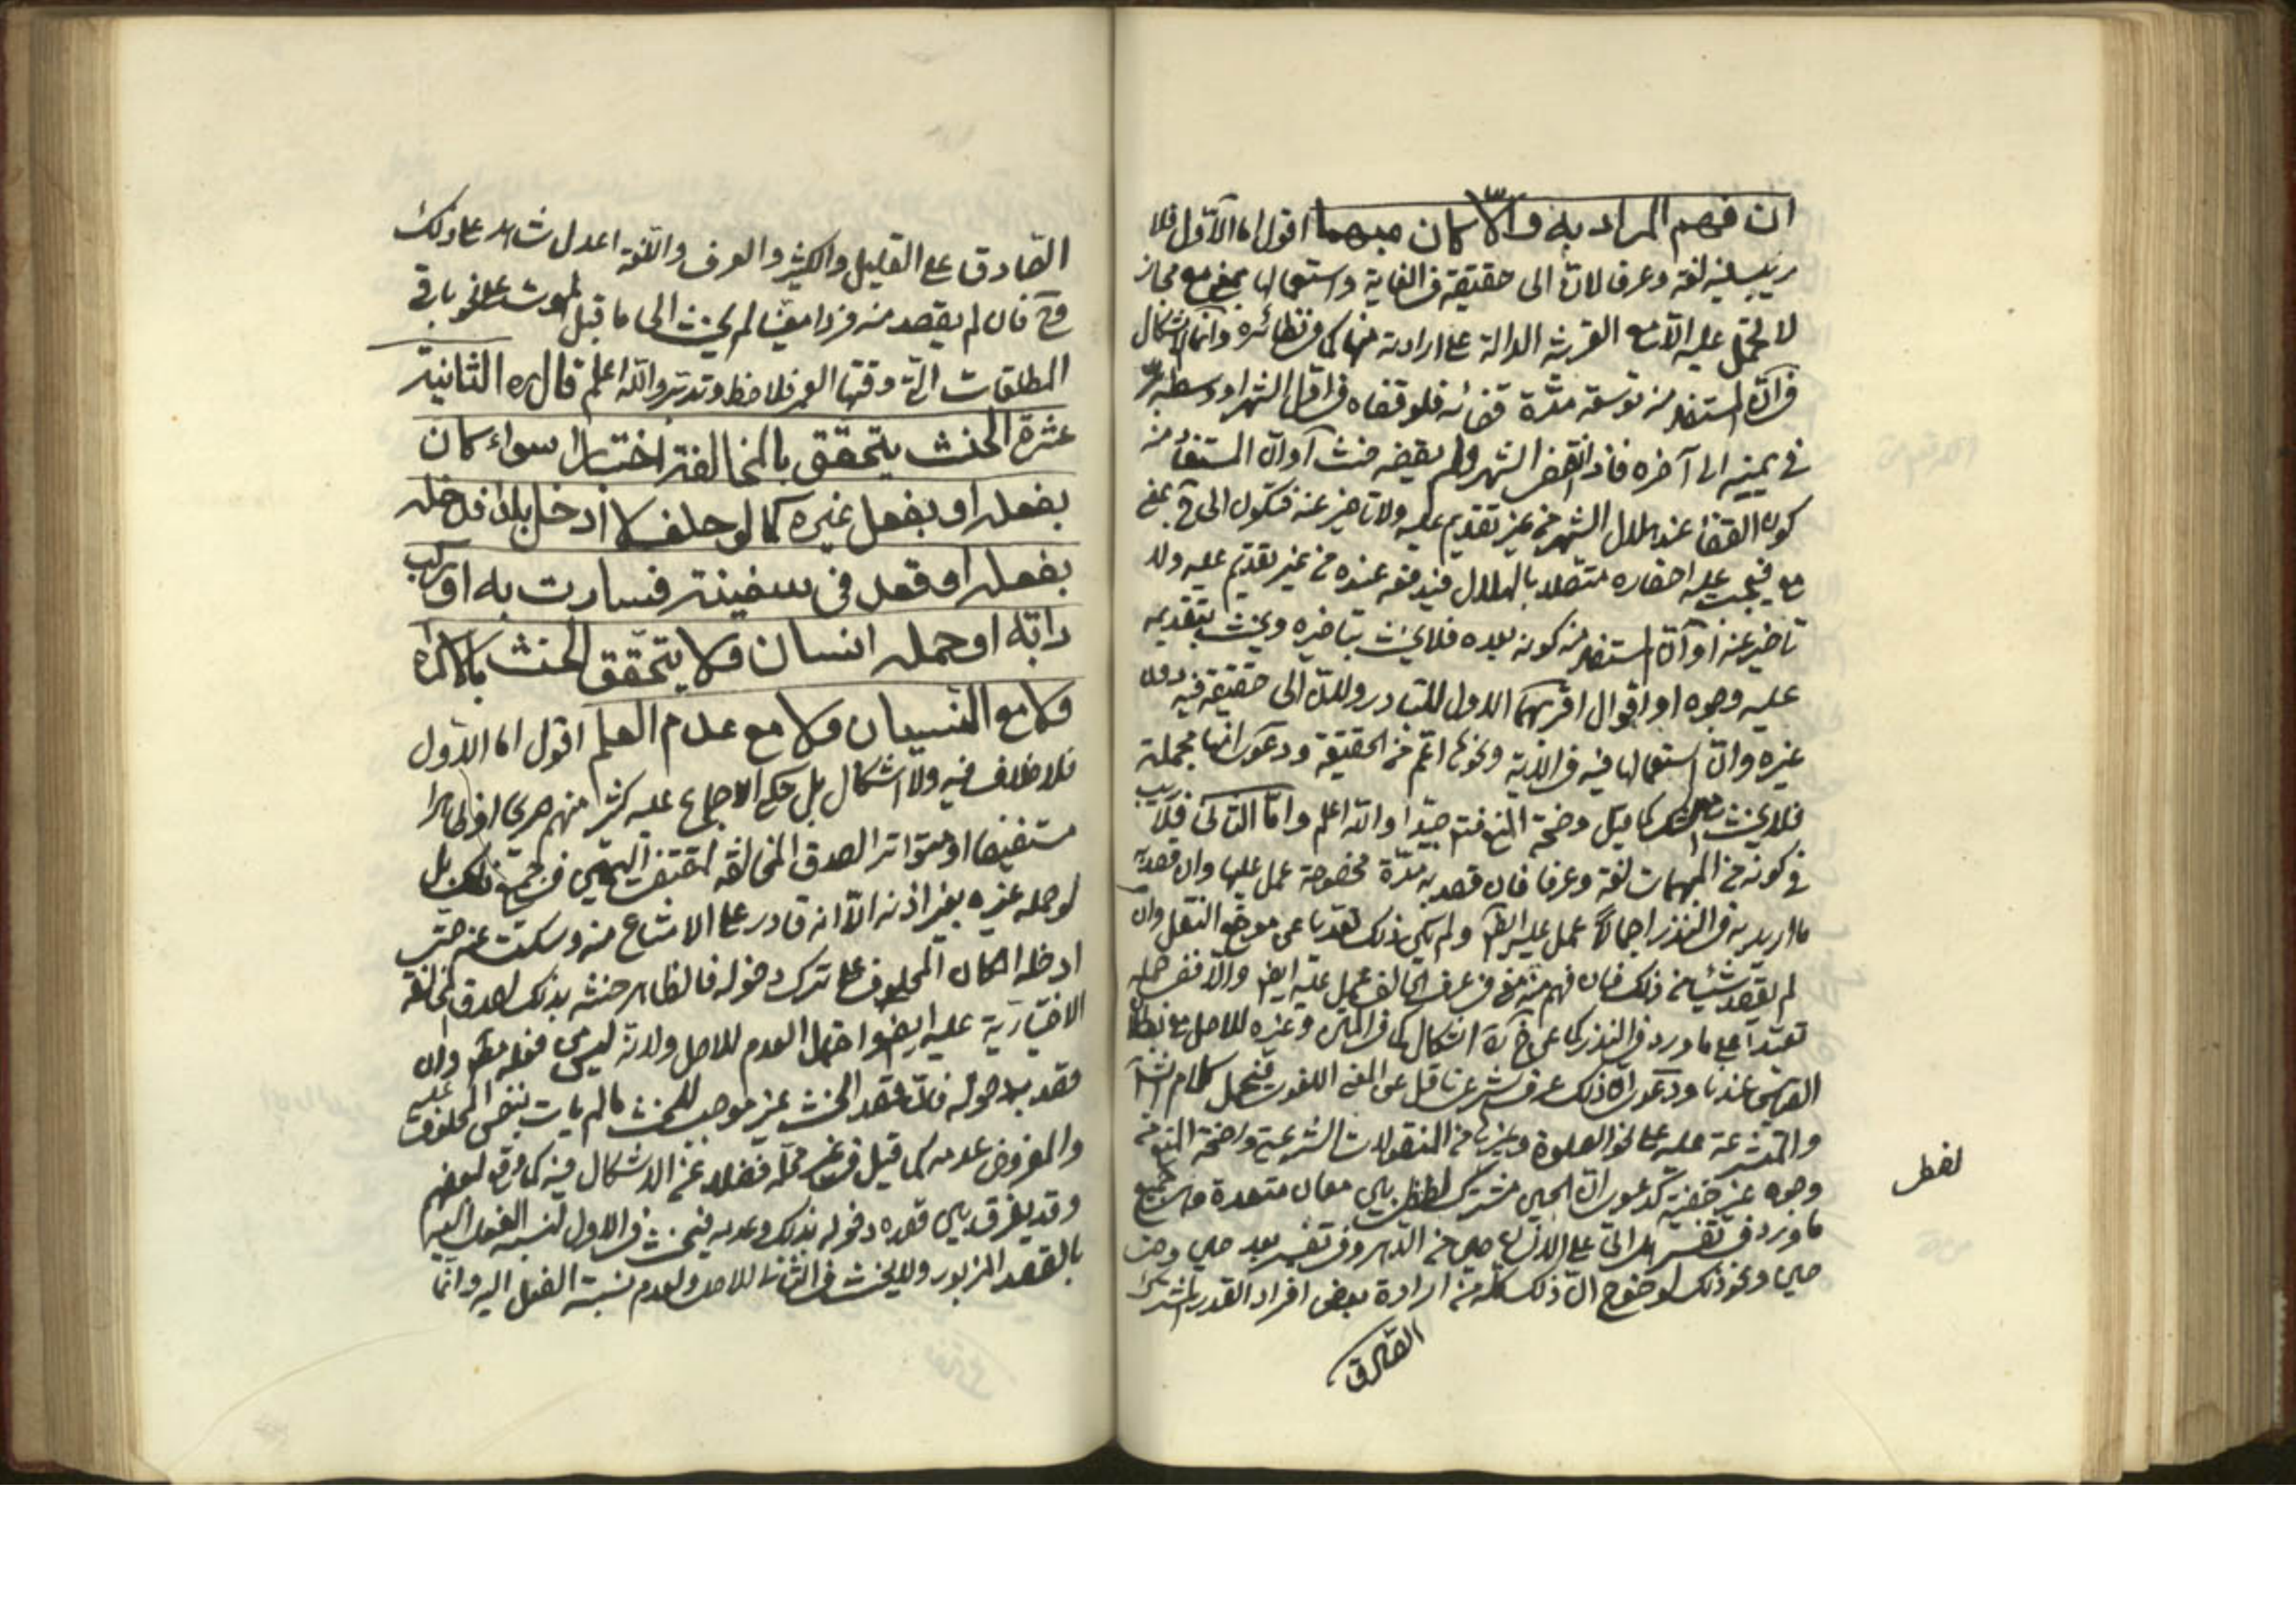 ان فهم المراد به والّا كان مبهما اقول اما الاوّل فلا
ريب فيه لغة وعرفا لان الى حقيقة في الغاية واستعمالها بمعنى مع مجاز
لا تحمل عليه الّا مع القرينة الدالة على ارادته منها كما في نظائره وانما الاشكال
في انّ المستفاد منه توسعة مدّة قضائه فلو قضاه في اول الشهر او وسطه برّ
في يمينه الى آخره فاذا انقضى الشهر ولم يقضه حنث او انّ المستفاد منه
كون القضاء عند هلال الشهر من غير تقديم عليه ولا تاخير عنه فتكون الى بمعنى
مع فيجب عليه احضاره متصلا بالهلال فيدفعه عنده من غير تقديم عليه ولا
تاخير عنه او انّ المستفاد منه كونه بعده فلا يحنث بتاخيره ويحنث بتقديمه
عليه وجوه او اقوال اقربها الاول للتبادر ولان الى حقيقة فيه دون
غيره وانّ استعمالها فيه في الآية ونحوها اعم من الحقيقة ودعوى انها مجملة
فلا يحنث كما قيل وضحة المنع فتم جيّدا والله اعلم وامّا الثاني فلا ريب
في كونه من المبهمات لغة وعرفا فان قصد به مدّة مخصوصة عمل عليها وان قصد
ما اريد به في النذر اجمالا عمل عليه ايضا ولم يكن ذلك تعديا عن موضع النقل وان
لم يقصد شيئا من ذلك فان فهم منه معنى في عرف الحالف عمل عليه ايضا والّا ففي حمله
تعبّدا على ما ورد في النذر كما عن اشكال كما في وغيره للاصل مع بطلان
القياس عندنا ودعوى ان ذلك عرف شرعي ناقل عن المعنى اللغوي فيحمل كلام الشارع
والمتشرعة عليه على نحو الصلوة وغيرها من المنقولات الشرعية واضحة المنع من
وجوه غير خفية كدعوى ان الحين مشترك لفظي بين معان متعددة
لفظ
ما ورد في تفسير هل اتى على الانسان حين من الدهر وفي تفسير بعد حين وحتى
حين ونحو ذلك لوضوح انّ ذلك كله من ارادة بعض افراد القدر المشترك
الصادق
الصّادق على القليل والكثير والعرف واللغة اعدل شاهد على ذلك
وح فان لم يقصد منه فردا معيّنا لم يحنث الى ما قبل الموت على نحو باقي
المطلقات التي وقتها العمر فلاحظ وتدبّر والله اعلم قال ره الثانية
عشرة الحنث يتحقق بالمخالفة اختيارا سواء كان
بفعله او بفعل غيره كما لو حلف لا ادخل بلدا فدخله
بفعله او قعد في سفينة فسارت به او ركب
دابّة او حمله انسان ولا يتحقق الحنث بالاكراه
ولا مع النسيان ولا مع عدم العلم اقول اما الاول
فلا خلاف فيه ولا اشكال بل حكى الاجماع عليه كثير منهم صريحا او ظاهرا
مستفيضا او متواترا لصدق المخالفة اليمين في جميع ذلك بل
لو حمله غيره بغير اذنه الّا انه قادر على الامتناع منه وسكت عنه حتى
ادخله المكان المحلوف على ترك دخوله فالظاهر حنثه بذلك لصدق المخالفة
الاختيارية عليه ايضا واحتمال العدم للاصل ولانه ليس من فعله وان
قصد بدخوله فانّ قصد الحنث غير موجب للحنث ما لم يات بنفس المحلوف عليه
والمفروض عدمه كما قيل في غير محلّه فضلا عن الاشكال فيه كما وقع لبعضهم
وقد يفرق بين قصده دخوله بذلك وعدمه فيحنث في الاول لنسبة الفعل اليه
بالقصد المزبور ولا يحنث في الثاني للاصل ولعدم نسبة الفعل اليه وانّما